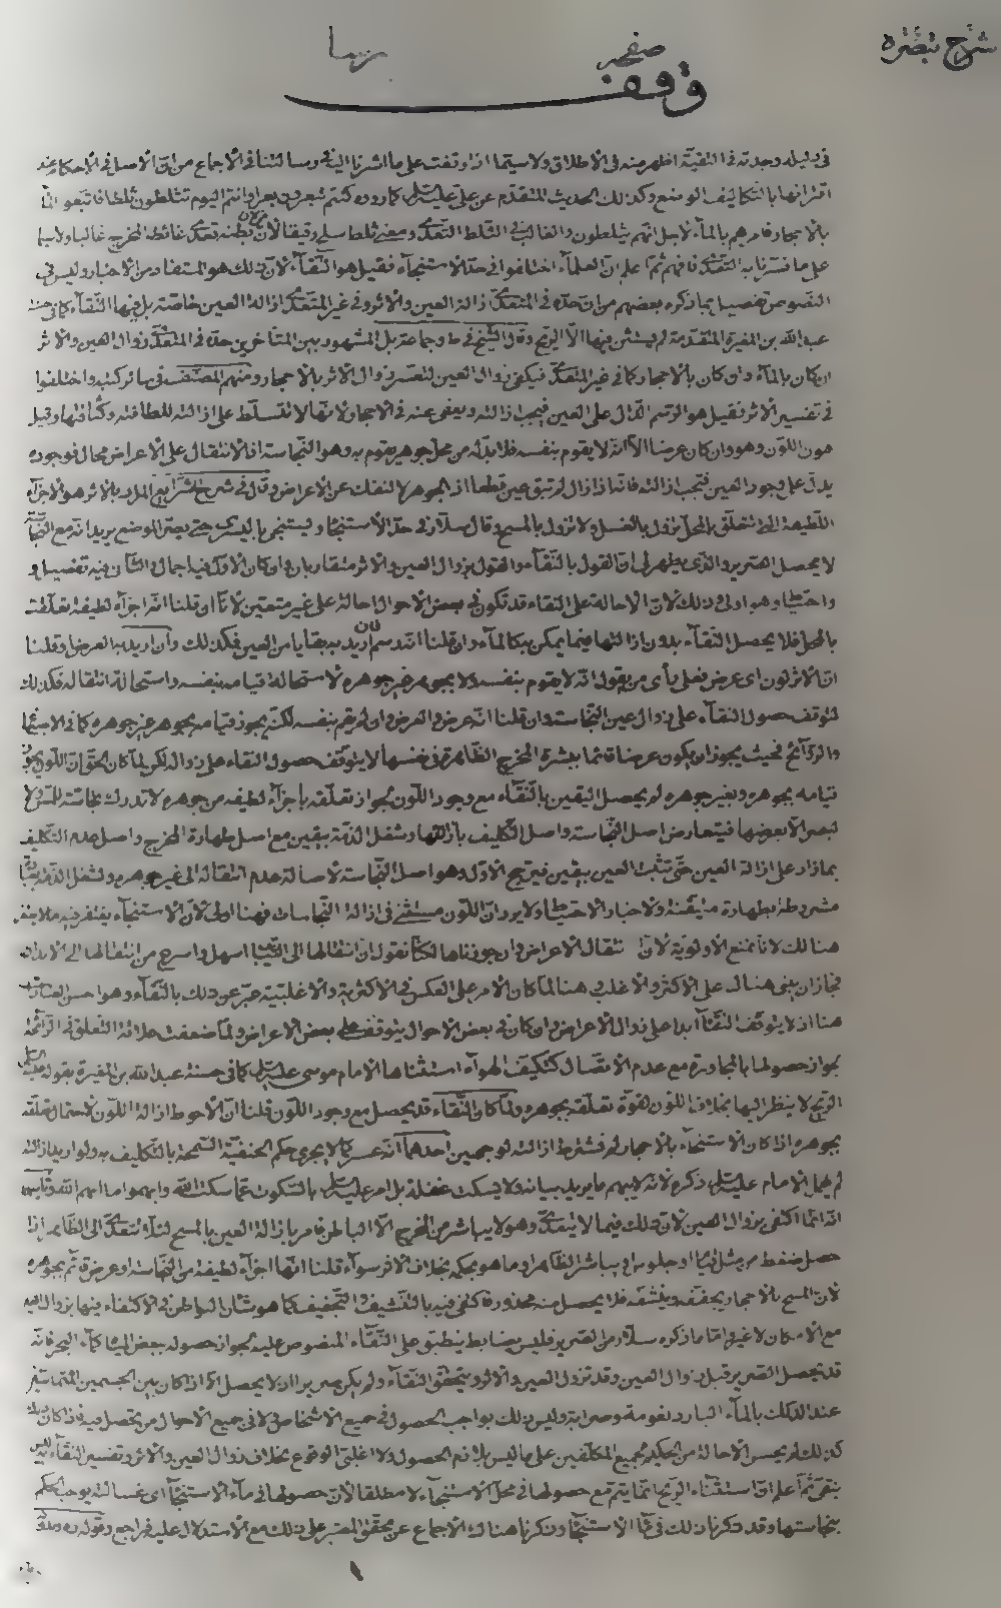 شرح تبصره
صفحه
وقف
في دليله وجدته في التقيّة اظهر منه في الاطلاق ولا سيّما اذا وقفت على ما اشرنا اليه في رسالتنا في الاجماع من ان الاصل في الاحكام عند
اقترانها بالتكاليف الوضع وكذلك الحديث المتقدّم عن عليّ عليه السلام كما روده كنتم تبعرون بعرا وانتم اليوم تثلطون ثلطا فاتبعوا
بالاحجار فامرهم بالماء لاجل انهم يثلطون والغالب في الثلط التعدّي ومعنى ثلط سلح رقيقا لأنّ بطنه تعدّى غائطه المخرج غالبا ولا سيما
على ما فسّرنا به التعدّي فافهم ثمّ اعلم ان العلماء اختلفوا في حدّ الاستنجاء فقيل هو النّقاء لأن ذلك هو المستفاد من الاخبار وليس في
النصوص تفصيل بما ذكره بعضهم من ان حدّه في المتعدّي ازالة العين والاثر وفي غير المتعدّي ازالة العين خاصّة بل فيها النّقاء كما في حسنة
عبد الله بن المغيرة المتقدّمة لم يستثن فيها الّا الريح وقال الشيخ في ط وجماعة بل المشهور بين المتأخرين حدّه في المتعدّي زوال العين والاثر
ان كان بالماء وان كان بالاحجار كما في غير المتعدّي فيكفي زوال العين لتعسّر زوال الاثر بالاحجار ومنهم المصنّف في سائر كتبه واختلفوا
في تفسير الاثر فقيل هو الرسم الدّال على العين فيجب ازالته ويعفى عنه في الاحجار لانها لا تتسلّط على ازالته للطافته وكثافتها وقيل
هو اللون وهو وان كان عرضا الّا انّه لا يقوم بنفسه فلا بدّ له من محلّ جوهر يقوم به وهو النّجاسة اذ الانتقال على الاعراض محال فوجوده
يدلّ على وجود العين فتجب ازالته فانّه اذا زال لم تبق عين قطعا اذ الجوهر لا ينفك عن الاعراض وقال في شرح الشرايع المراد بالاثر هو الاجزاء
اللطيفة التي تتعلّق بالمحلّ تزول بالغسل ولا تزول بالمسح وقال سلّار في حدّ الاستنجاء ويستنجي باليسرى حتى يصرّ الموضع يريد انه مع النجاسة
لا يحصل الصرير والذي يظهر لي انّ القول بالنّقاء والقول بزوال العين والاثر متقاربان وان كان الاول فيه اجمال والثاني فيه تفصيل
واحتياط وهو اولى وذلك لأنّ الاحالة على النقاء قد تكون في بعض الاحوال احالة على غير متعيّن لأنّا ان قلنا انه اجزاء لطيفة تعلّقت
بالمحل فلا يحصل النّقاء بدون ازالتها فيما يمكن كالماء وان قلنا انه رسم فان اريد به بقايا من العين فكذلك وان اريد به العرض وقلنا
انّ الاثر لون اي عرض فعلى رأي من يقول انّه لا يقوم بنفسه ولا بجوهر غير جوهره لاستحالة قيامه بنفسه واستحالة انتقاله فكذلك
لتوقف حصول النقاء على زوال عين النّجاسة وان قلنا انّه عرض والعرض وان لم يقم بنفسه لكنّه يجوز قيامه بجوهر غير جوهره كما في الاشياء
والروائح فحيث يجوز ان يكون عرضا قائما ببشرة المخرج الظاهرة في نفسها لا يتوقف حصول النقاء على زواله لكن لما كان الحقّ انّ اللون يجوز
قيامه بجوهره وبغير جوهره لم يحصل اليقين بالنّقاء مع وجود اللون لجواز تعلّقه باجزاء لطيفة من جوهره لا تدرك
لبعضها فيتعارض اصل النّجاسة واصل التكليف بازالتها وشغل الذمّة بيقين مع اصل طهارة المخرج واصل عدم التكليف
بما زاد على ازالة العين حتّى تثبت العين بيقين فيرجّح الاوّل وهو اصل النّجاسة لاصالة عدم انتقاله الى غير جوهره ولشغل الذمّة
مشروطة بطهارة متيقّنة ولاخبار الاحتياط ولا يرد انّ اللون مستثنى في ازالة النّجاسات فهنا اولى لأنّ الاستنجاء يغتفر فيه ما لا يغتفر
هنالك لانّا نمنع الاولويّة لأنّ انتقال الاعراض وان جوزناها لكنّا نقول انّ انتقالها الى الثياب اسهل واسرع من انتقالها الى الابدان
فجاز ان يبنى هنالك على الاكثر والاغلب وهنا لما كان الامر على العكس في الاكثرية والاغلبيّة عبّر عن ذلك بالنّقاء وهو احسن العبارتين
هنا اذ لا يتوقّف النّقاء ابدا على زوال الاعراض وان كان في بعض الاحوال يتوقّف على بعض الاعراض ولما ضعفت علاقة التعلّق في الرائحة
بجواز حصولها بالمجاورة مع عدم الاتصال كتكيّف الهواء استثناها الامام موسى عليه السلام كما في حسنة عبد الله بن المغيرة بقوله عليه السلام
الريح لا ينظر اليها بخلاف اللون لقوة تعلّقه بجوهره ولما كان النّقاء قد يحصل مع وجود اللون قلنا انّ الاحوط ازالة اللون لاحتمال تعلّقه
بجوهره اذا كان الاستنجاء بالاحجار لم تشترط ازالته لوجهين احدهما انّه عسر كما لا يجري حكم الحنفيّة السّمحة بالتكليف به ولو اريد ازالته
لم يهمل الامام عليه السلام ذكره لانّه لا يبهم ما يريد بيانه ولا يسكت غفلة بل امر عليه السلام بالسكوت عمّا سكت الله وابهموا ما ابهم الله وثانيهما
انه انما اكتفى بزوال العين لأنّ ذلك فيما لا يتعدّى وهو لا يباشر من المخرج الا الباطن فامر بازالة العين بالمسح لئلا تتعدّى الى الظاهر اذا
حصل ضغط من مشي او جلوس او يباشر الظاهر او ما هو بحكمه بخلاف الاثر سواء قلنا انها اجزاء لطيفة من النّجاسة او عرض قائم بجوهره
لأنّ المسح بالاحجار يجفّفه وينشّفه فلا يحصل منه محذور فاكتفي فيه بالتنشيف والتجفيف كما هو شأن البواطن في الاكتفاء فيها بزوال العين
مع الامكان لا غير وامّا ما ذكره سلّار من الصرير فليس بضابط ينطبق على النّقاء المنصوص عليه لجواز حصوله ببعض المياه كماء البحر فانه
قد يحصل الصرير قبل زوال العين وقد تزول العين والاثر ويتحقّق النّقاء ولم يكن صرير اذ لا يحصل الّا اذا كان بين الجسمين المتماسّين
عند الدلك بالماء البارد نعومة وصرابة وليس ذلك بواجب الحصول في جميع الاشخاص ولا في جميع الاحوال من يحصل فيه فاذا كان
كذلك لم يحسن الاحالة من الحكيم لجميع المكلّفين على ما ليس بلازم الحصول ولا اغلبيّ الوقوع بخلاف زوال العين والاثر وتفسير النّقاء به ليس
بنقيّ ثمّ اعلم انّ استثناء الريح انما يتمّ مع حصولها في محلّ الاستنجاء لا مطلقا لأنّ حصولها في ماء الاستنجاء اي غسالته يوجب الحكم
بنجاستها وقد ذكرنا ذلك في ماء الاستنجاء وذكرنا هناك الاجماع عن محقّق المعتبر على ذلك مع الاستدلال عليه فراجع وقوله ره